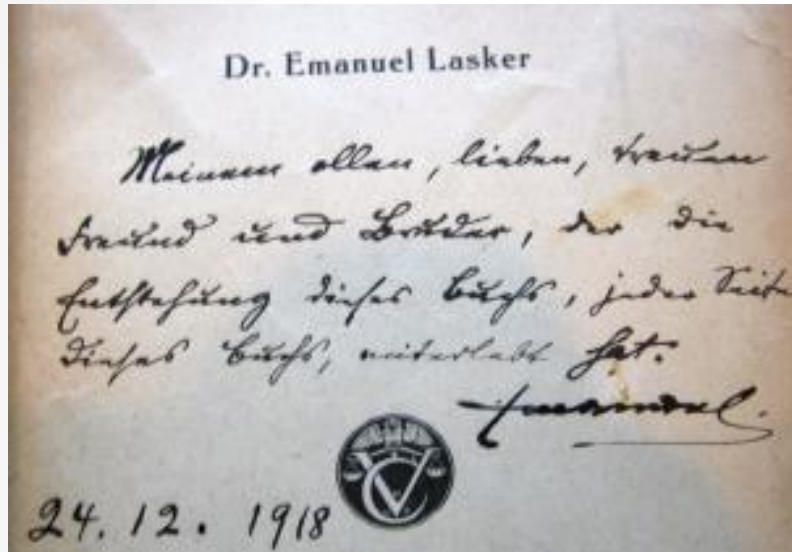 Dr. Emanuel Lasker
Meinem alten, lieben, treuen
Freund und Bruder, der die
Entstehung dieses Buchs, jeder Seite
dieses Buchs, miterlebt hat.
Emanuel.
VC
24. 12. 1918